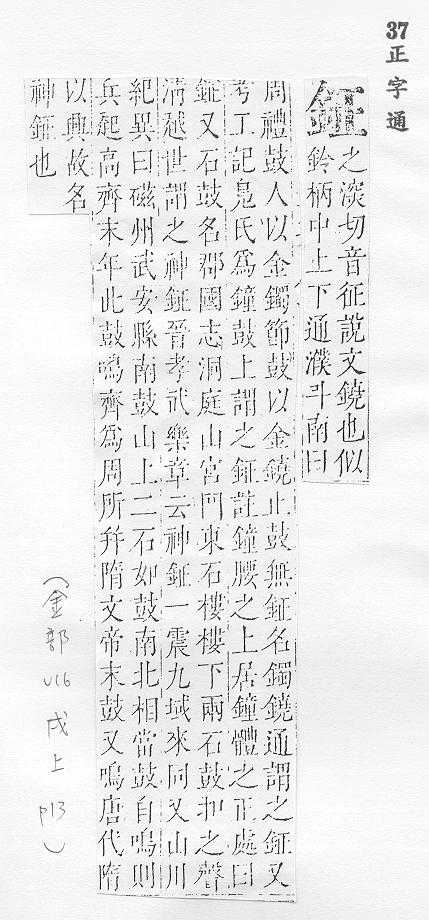 37正字通
鉦
之淡切音征說文鐃也似
鈴柄中上下通濮斗南曰
周禮鼓人以金鐲節鼓以金鐃止鼓無鉦名鐲鐃通謂之鉦又
考工記鳧氏爲鐘鼓上謂之鉦註鐘腰之上居鐘體之正處曰
鉦又石鼓名郡國志洞庭山宮門東石樓樓下兩石鼓扣之聲
淸越世謂之神鉦晉孝武樂章云神鉦一震九域來同又山川
紀異曰磁州武安縣南鼓山上二石如鼓南北相當鼓自鳴則
兵起高齊末年此鼓鳴齊爲周所幷隋文帝末鼓又鳴唐代隋
以興故名
神鉦也
(金部 U16 戌上 p13)